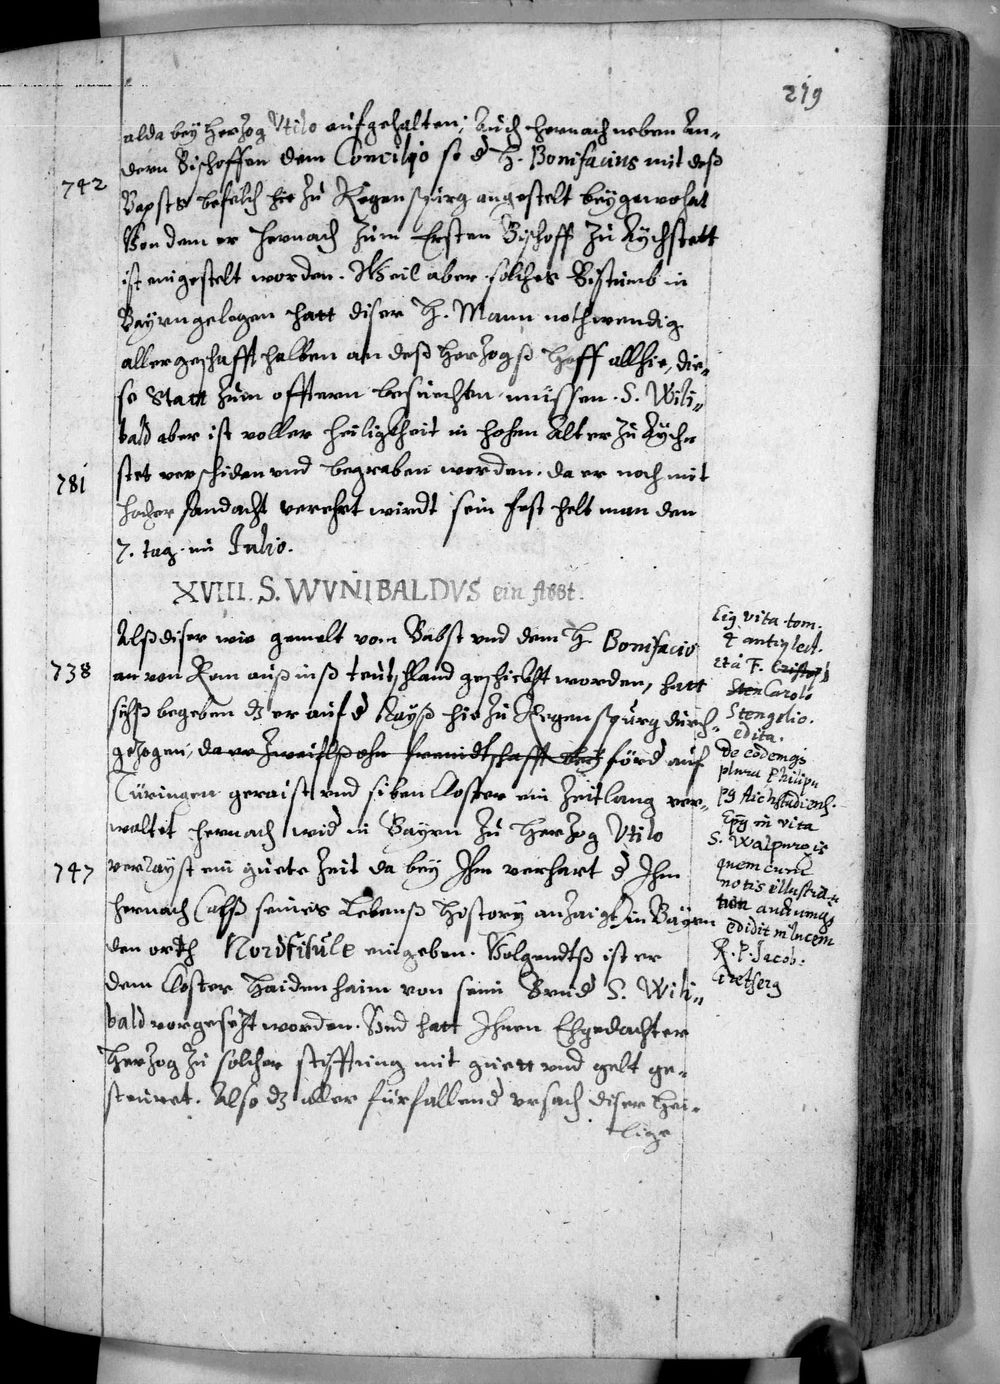 219
alda bey Herzog Vtilo aufgehalten; Auch hernach neben An-
dern Bischoffen dem Concilio so d H. Bonifacius mit deß
742
Bapsts befelch hie zu Regenspurg angestelt beygewohnt
Von dem er hernach zum Ersten Bischoff zu Aychstett
ist eingestelt worden. Weil aber solches Bistumb in
Bayrn gelegen hatt diser H. Mann nothwendig
aller geschafft halben an deß Herzogß Hoff allhie, die-
se Statt zum offtern besuechen müssen. S. Wili-
bald aber ist voller heiligkheit in hohen Alter zu Aych-
781
stet verschiden und begraben worden. da er noch mit
hocher Andacht verehrt wirdt sein fest helt man den
7. tag im Julio.
XVIII. S. WVNIBALDVS ein Abbt.
Alß diser wie gemelt vom Babst und dem H. Bonifacio
738
an von Rom auß inß teutschland geschickht worden, hatt
sichß begeben dz er auf d Rayß hie zu Regenspurg durch-
gezogen, da er zweiflß ohn freundtschafft förd auf
Türingen geraist und siben Closter ein Zeitlang ver-
waltet hernach wid in Bayrn zu Herzog Vtilo
747
verrayst ein guete Zeit da bey Ihm verhart d Ihm
hernach (alß seines Lebenß History anzaigt) in Bayrn
den orth Nordfilüse eingeben. Volgendtß ist er
dem Closter Haidenhaim von seim Brud S. Wili-
bald vorgesetzt worden. Und hatt Ihnen Ehgedachter
Herzog zu solcher stifftung mit guett und gelt ge-
steuret. Also dz aller fürfallend ursach diser Hei-
lige
Eig vita tom.
4 antiq lect.
et a F.
Carolo
Stengelio.
edita.
De eodem
plura Philipp
Aichstadiens.
Epg in vita
S. Walpurgis
quem cum
notis illustra-
tum
edidit in lucem
R. P. Jacob:
Gretserg